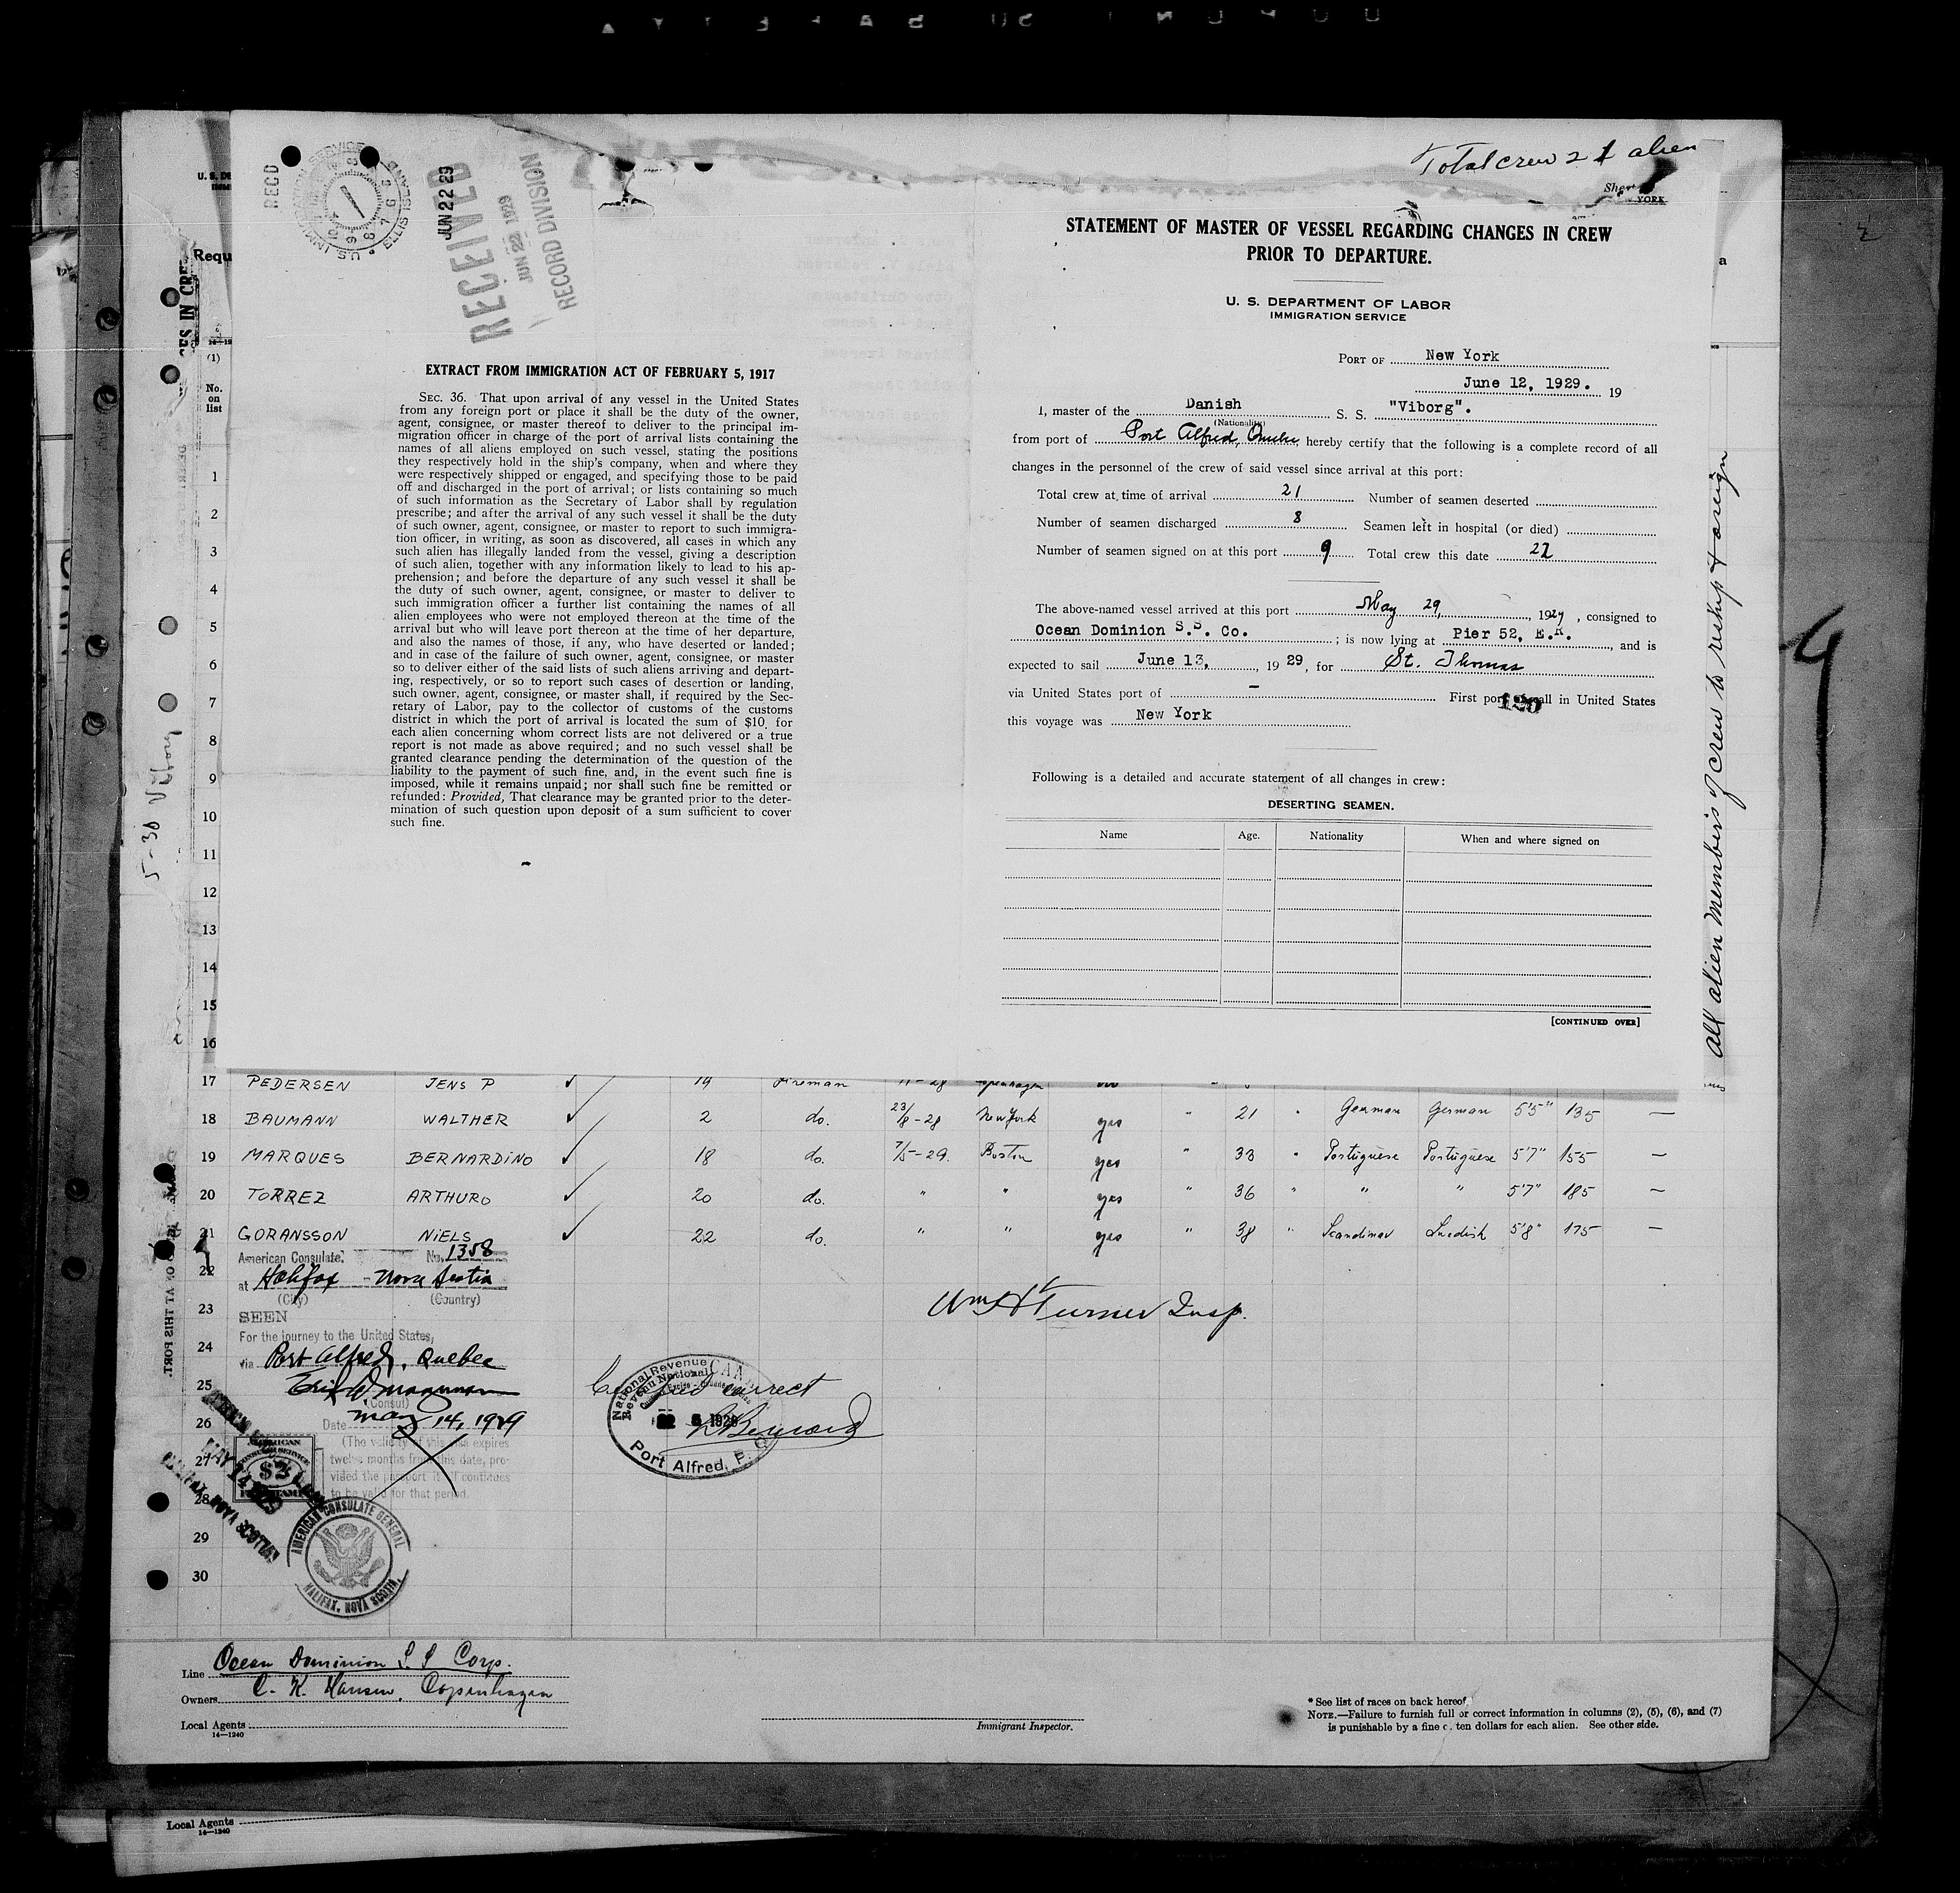 Total crew 21 alien
RECD
U.S. IMMIGRATION SERVICE
ELLIS ISLAND
JUN 22 29
RECEIVED
JUN 22 1929
RECORD DIVISION
EXTRACT FROM IMMIGRATION ACT OF FEBRUARY 5, 1917
SEC. 36. That upon arrival of any vessel in the United States
from any foreign port or place it shall be the duty of the owner,
agent, consignee, or master thereof to deliver to the principal im-
migration officer in charge of the port of arrival lists containing the
names of all aliens employed on such vessel, stating the positions
they respectively hold in the ship's company, when and where they
were respectively shipped or engaged, and specifying those to be paid
off and discharged in the port of arrival; or lists containing so much
of such information as the Secretary of Labor shall by regulation
prescribe; and after the arrival of any such vessel it shall be the duty
of such owner, agent, consignee, or master to report to such immigra-
tion officer, in writing, as soon as discovered, all cases in which any
such alien has illegally landed from the vessel, giving a description
of such alien, together with any information likely to lead to his ap-
prehension; and before the departure of any such vessel it shall be
the duty of such owner, agent, consignee, or master to deliver to
such immigration officer a further list containing the names of all
alien employees who were not employed thereon at the time of the
arrival but who will leave port thereon at the time of her departure,
and also the names of those, if any, who have deserted or landed;
and in case of the failure of such owner, agent, consignee, or master
so to deliver either of the said lists of such aliens arriving and depart-
ing, respectively, or so to report such cases of desertion or landing,
such owner, agent, consignee, or master shall, if required by the Sec-
retary of Labor, pay to the collector of customs of the customs
district in which the port of arrival is located the sum of $10 for
each alien concerning whom correct lists are not delivered or a true
report is not made as above required; and no such vessel shall be
granted clearance pending the determination of the question of the
liability to the payment of such fine, and, in the event such fine is
imposed, while it remains unpaid; nor shall such fine be remitted or
refunded: Provided, That clearance may be granted prior to the deter-
mination of such question upon deposit of a sum sufficient to cover
such fine.
STATEMENT OF MASTER OF VESSEL REGARDING CHANGES IN CREW
PRIOR TO DEPARTURE.
U. S. DEPARTMENT OF LABOR
IMMIGRATION SERVICE
PORT OF New York
June 12, 1929. 19
I, master of the Danish S. S. "Viborg".
(Nationality)
from port of Port Alfred, Quebec, hereby certify that the following is a complete record of all
changes in the personnel of the crew of said vessel since arrival at this port:
Total crew at time of arrival 21 Number of seamen deserted
Number of seamen discharged 8 Seamen left in hospital (or died)
Number of seamen signed on at this port 9 Total crew this date 22
The above-named vessel arrived at this port May 29, 1929, consigned to
Ocean Dominion S.S. Co. ; is now lying at Pier 52, E.R., and is
expected to sail June 13, 19 29, for St. Thomas
via United States port of - First port call in United States
120
this voyage was New York
Following is a detailed and accurate statement of all changes in crew:
DESERTING SEAMEN.
Name Age. Nationality When and where signed on
[CONTINUED OVER]
all alien members of crew to reship foreign
5-30 Viborg
(1)
No.
on
list
1
2
3
4
5
6
7
8
9
10
11
12
13
14
15
16
17 PEDERSEN JENS P 19 Fireman
18 BAUMANN WALTHER 2 do. 23/8-28 New York yes " 21 " German German 5'5" 135 —
19 MARQUES BERNARDINO 18 do. 7/5-29. Boston yes " 33 " Portuguese Portuguese 5'7" 155 —
20 TORREZ ARTHURO 20 do. " " yes " 36 " " " 5'7" 185 —
21 GORANSSON NIELS 22 do. " " yes " 38 " Scandinav Swedish 5'8" 175 —
American Consulate. No. 1358
22 at Halifax - Nova Scotia
(City) (Country)
23 SEEN
Wm H Turner Insp.
For the journey to the United States,
24 via Port Alfred, Quebec
25
(Consul)
Certified correct
26 Date May 14, 1929
(The validity of this visa expires
27 twelve months from this date, pro-
vided the passport it continues
28 to be valid for that period.
29
30
National Revenue CANADA
Revenu National
Port Alfred, P. Q.
MAY 14 1929
HALIFAX, NOVA SCOTIA
AMERICAN CONSULATE GENERAL
HALIFAX, NOVA SCOTIA.
Line Ocean Dominion S S Corp.
Owners C. K. Hansen, Copenhagen
Local Agents
14—1240
Immigrant Inspector.
* See list of races on back hereof
NOTE.—Failure to furnish full or correct information in columns (2), (5), (6), and (7)
is punishable by a fine of ten dollars for each alien. See other side.
Local Agents
14—1240